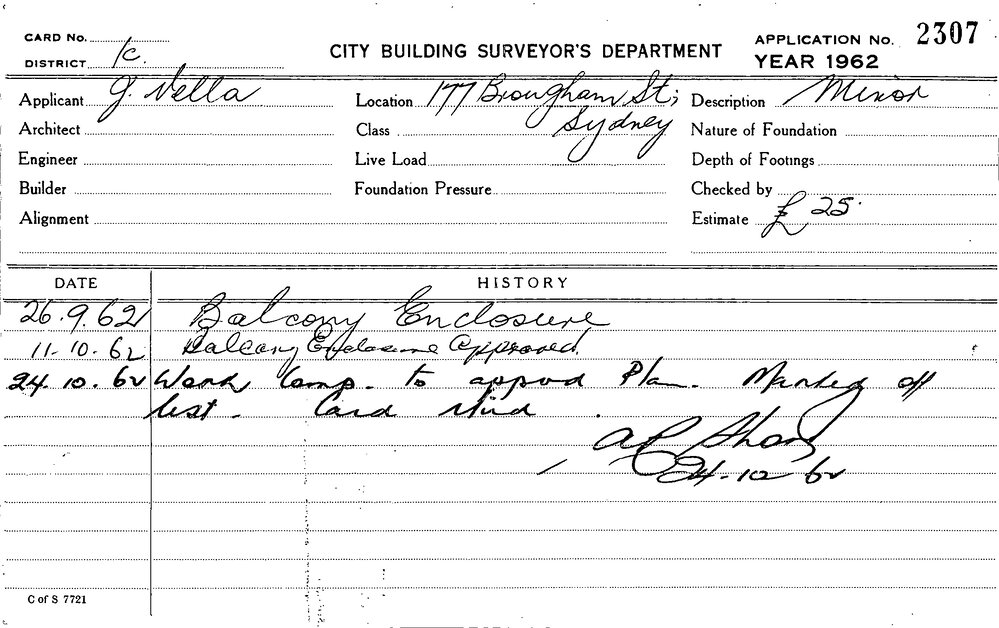 CARD No.
DISTRICT 1c.
CITY BUILDING SURVEYOR'S DEPARTMENT
APPLICATION No. 2307
YEAR 1962
Applicant J. Vella Location 177 Brougham St; Description Minor
Architect Class Sydney Nature of Foundation
Engineer Live Load Depth of Footings
Builder Foundation Pressure Checked by
Alignment Estimate £ 25.
DATE HISTORY
26.9.62 Balcony Enclosure
11.10.62 Balcony Enclosure Approved.
24.10.62 Work Comp. to appvd Plan. Marked off
list. Card
24-10 62
C of S 7721